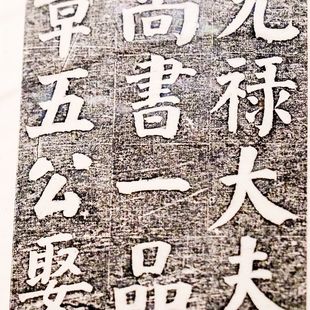 光禄大夫
尚書一品
章五公娶